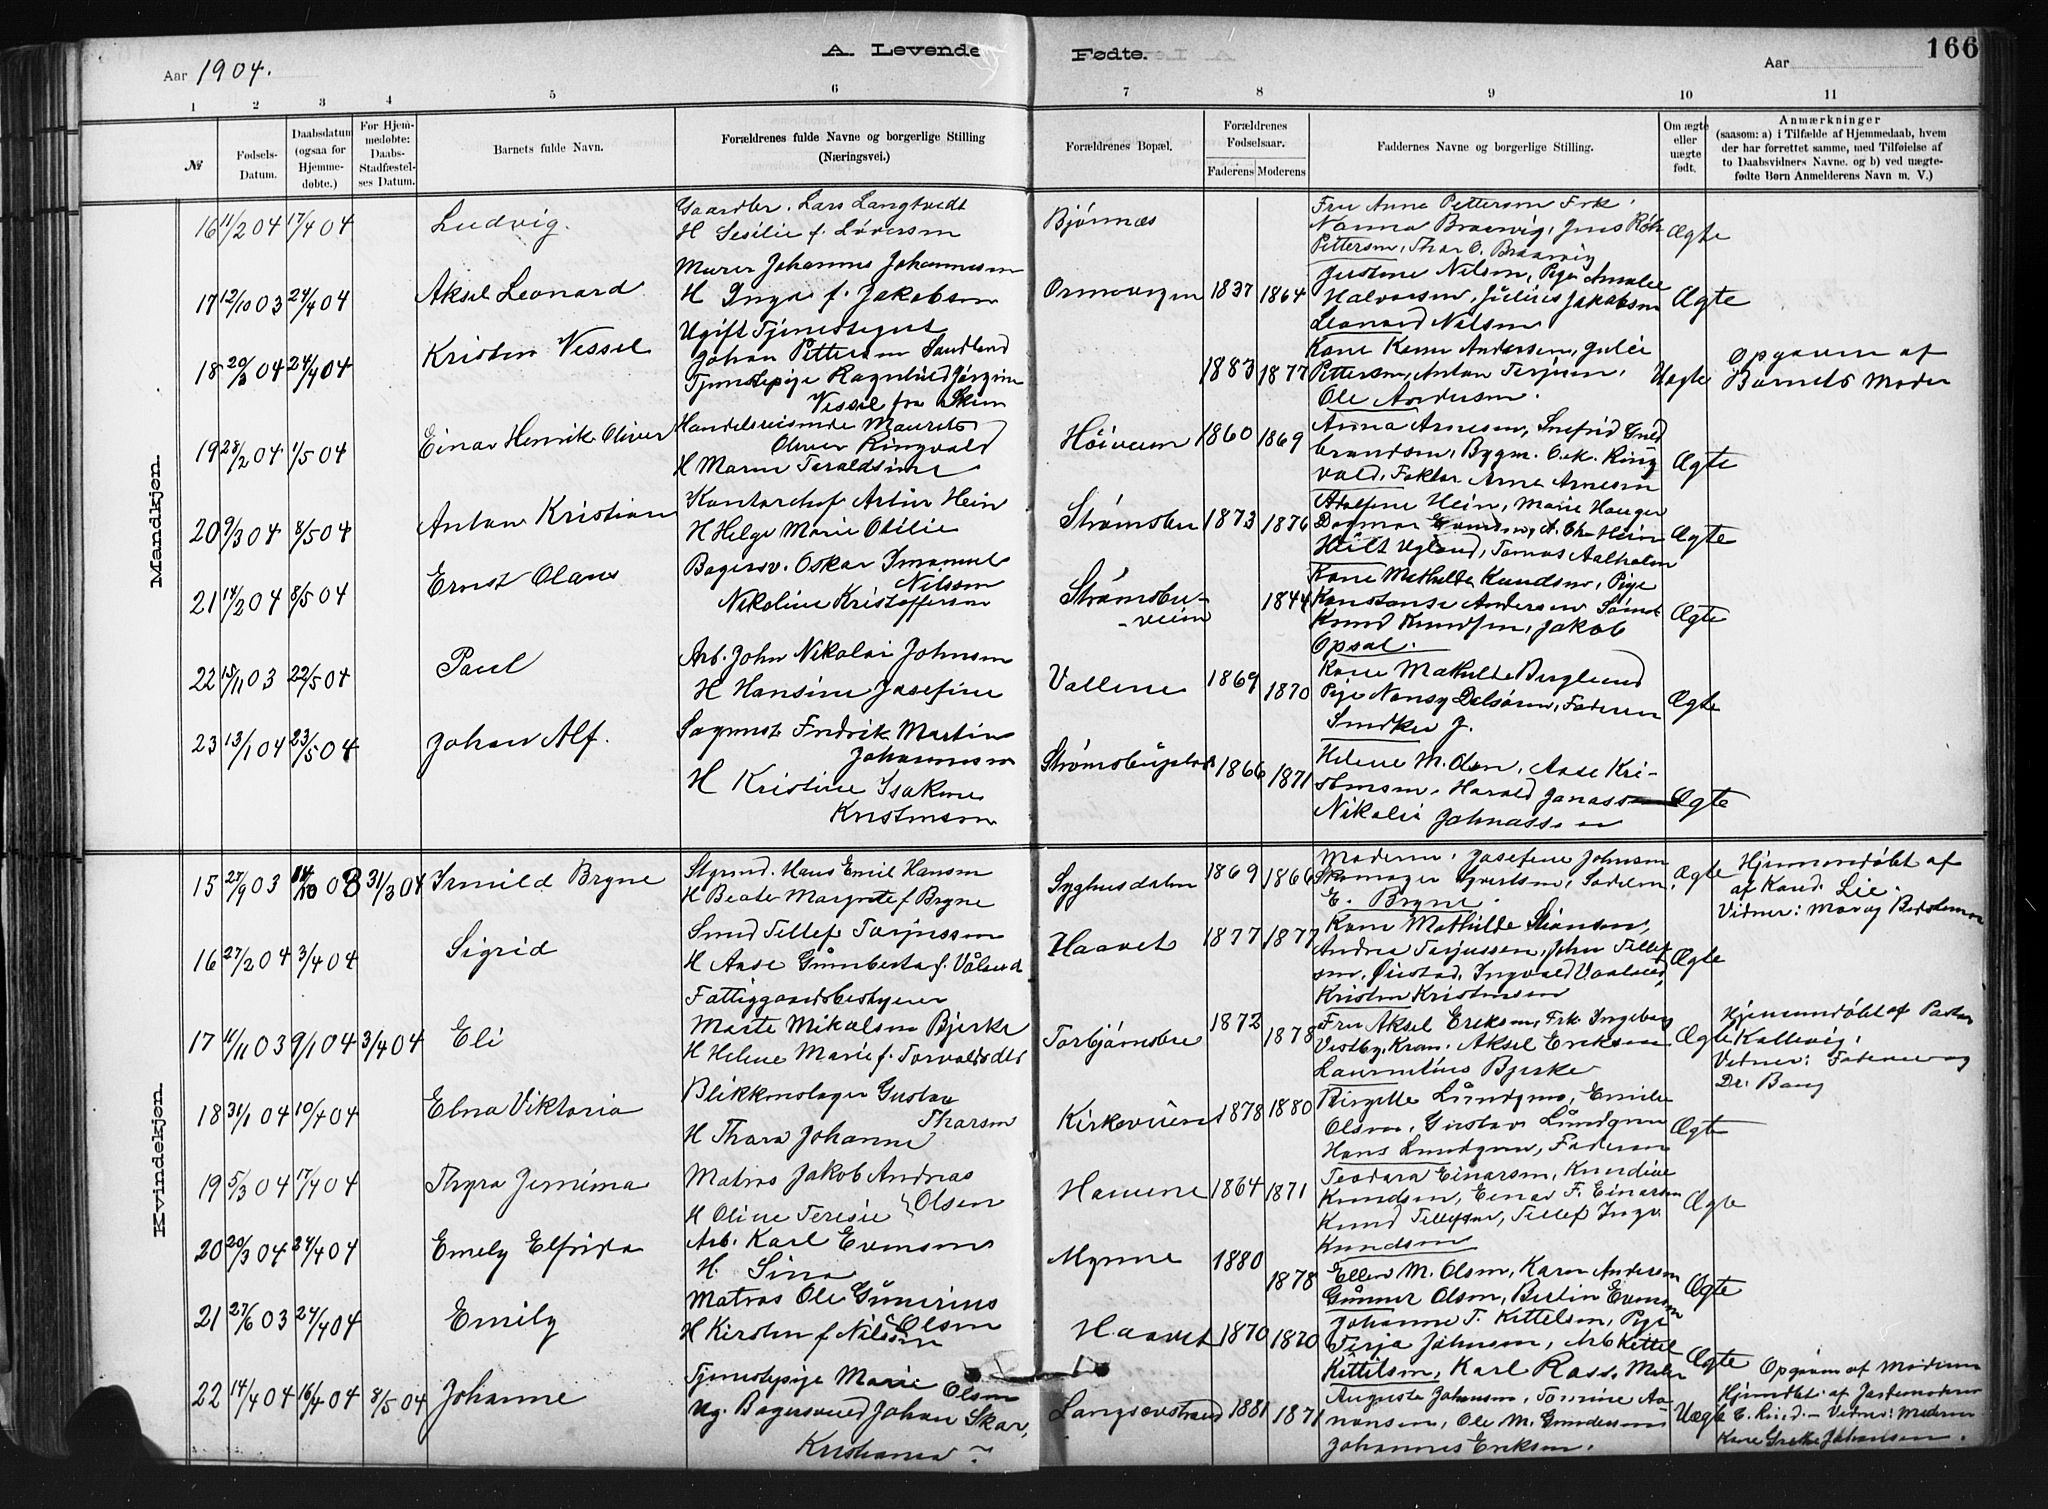 A. Levende Fødte.
166
Aar 1904.
Aar
1 2 3 4 5 6 7 8 9 10 11
№
Fødsels-Datum.
Daabsdatum (ogsaa for Hjemme-døbte.)
For Hjem-medøbte: Daabs-Stadfæstel-ses Datum.
Barnets fulde Navn.
Forældrenes fulde Navne og borgerlige Stilling (Næringsvei.)
Forældrenes Bopæl.
Forældrenes Fødselsaar.
Faderens Moderens
Faddernes Navne og borgerlige Stilling.
Om ægte eller uægte født.
Anmærkninger
(saasom: a) i Tilfælde af Hjemmedaab, hvem
der har forrettet samme, med Tilføielse af
to Daabsvidners Navne. og b) ved uægte-
fødte Børn Anmelderens Navn m. V.)
Mandkjøn.
16 11/2 04 17/4 04 Ludvig.
Gaardbr. Lars Langtvedt
H Sesilie f. Løversen
Bjønnæs
Fru Anne Pettersen Frk.
Nanna Braavig, Jens Røh
Pettersen, Thor O. Braavig
Ægte
17 12/10 03 24/4 04 Aksel Leonard
Murer Johannes Johannesen
H Inga f. Jakobsen
1837 1864
Justine Nilsen, Pige Amalie
Halvorsen, Julius Jakobsen
Leonard Nilsen
Ægte
18 20/3 04 24/4 04 Kristen Vessel
Ugift Tjenestegut
Johan Pettersen Sandland
Tjenestepige Ragnhild Jørgine
Vessel fra Skien
1883 1877
Kone Karen Andersen, Julie
Pettersen, Anton Terjesen,
Ole Andersen.
Uægte
Opgaven af
Barnets Moder
19 28/2 04 1/5 04 Einar Henrik Oliver
Handelsreisende Maurits
Oliver Ringvald
H Maren Taraldsine
Høiveien
1860 1869
Anna Arnesen, Snefrid Guld
brandsen, Bygm. O.K. Ring
vald, Faktor Arne Arnesen
Ægte
20 9/3 04 8/5 04 Anton Kristian
Kontorchef Artur Hein
H Helga Marie Otilie
Strømsbu
1873 1876
Adolfine Hein, Marie Hauger
Dagmar A. Chr Hein
Ugland, Tomas Aalholm
Ægte
21 14/2 04 8/5 04 Ernst Olaus
Bagersv. Oskar Imanuel
Nilsson
Nikoline Kristofferson
Strømsbu-
-veien
1844
Kone Mathilde Knudsen, Pige
Konstanse Andersen Sømd
Knud Knudsen, Jakob
Opsal.
Ægte
22 15/11 03 22/5 04 Paul
Arb. John Nikolai Johnsen
H Hansine Josefine
Vallene
1869 1870
Kone Mathilde Berglund
Pige Nansy Faderen
Smdker J.
Ægte
23 13/1 04 23/5 04 Johan Alf.
Sagmst. Fredrik Martin
Johannesen
H Kristine Isakine
Kristensen
1866 1871
Helene M. Olsen, Aase Kri-
stensen, Harald Jonassen
Nikolai Johnassen
Ægte
Kvindekjøn.
15 27/9 03 31/3 04 Irmild Bryne
Styrmd. Hans Emil Hansen
H Beate Margrete f Bryne
Syghusdalen
1869 1866
Moderen, Josefine Johnsen
Skomager
E. Bryne.
Ægte
Hjemmedøbt af
af Kand. Lie.
16 27/2 04 3/4 04 Sigrid
Smed Tellef Torjussen
H Aase Gunberta f. Våland
Haavet
1877 1877
Kone Mathilde
Andrea Torjussen, John Tellef
sen, Ingvald Vaaland,
Kristen Kristensen
Ægte
17 11/11 03 9/1 04 3/4 04 Eli
Fattiggaardsbestyrer
Marte Mikalsen Bjerke
H Helene Marie f. Torvaldsdtr
Torbjørnsbu
1872 1878
Fru Aksel Eriksen, Frk Ingeborg
Vestby, Aksel Eriksen
Laurentius Bjerke
Ægte
Hjemmedøbt af Pastor
Kallevig.
Vidner: Faderen og
Dr. Bang
18 31/1 04 10/4 04 Elna Viktoria
Blikkenslager Gustav
Tharsen
H Thora Johanne
Kirkeveien
1878 1880
Birgitte Lundgren, Emilie
Olsen, Gustav Lundgren
Hans Lundgren, Faderen
Ægte
19 5/3 04 17/4 04 Thyra Jemima
Matros Jakob Andreas
Olsen
H Oline Teresie
1864 1871
Teodora Einarsen, Kundine
Knudsen, Einar F. Einarsen
Knud Tellefsen, Tellef Ingv.
Knudsen
Ægte
20 20/3 04 24/4 04 Emely Elfrida
Arb. Karl Evensen
H. Sina
Myrene
1880 1878
Ellen M. Olsen, Karen Andersen
Gunner Olsen, Berlin Evensen
Ægte
21 27/6 03 24/4 04 Emily
Matros Ole Gunerius
Olsen
H Kirsten f. Nilsson
Haavet
1870 1870
Johanne T. Kittelsen, Pige
Terja Johnsen, Arb Kittel
Kittelsen, Karl Rass. Maler
Ægte
22 14/4 04 16/4 04 8/5 04 Johanne
Tjenestepige Marie Olsen
Ug. Bagersvend Johan Skar,
Kristiania
Langsævstrand
1881 1871
Augusta Johansen, Tomine Aa-
nonsen, Ole M. Gundersen
Johannes Eriksen.
Uægte
Opgivem af Moderen
Hjemdbt. af Jordemoderen
E. Rind. – Vidner: Moderen
Kone Grethe Johansen.